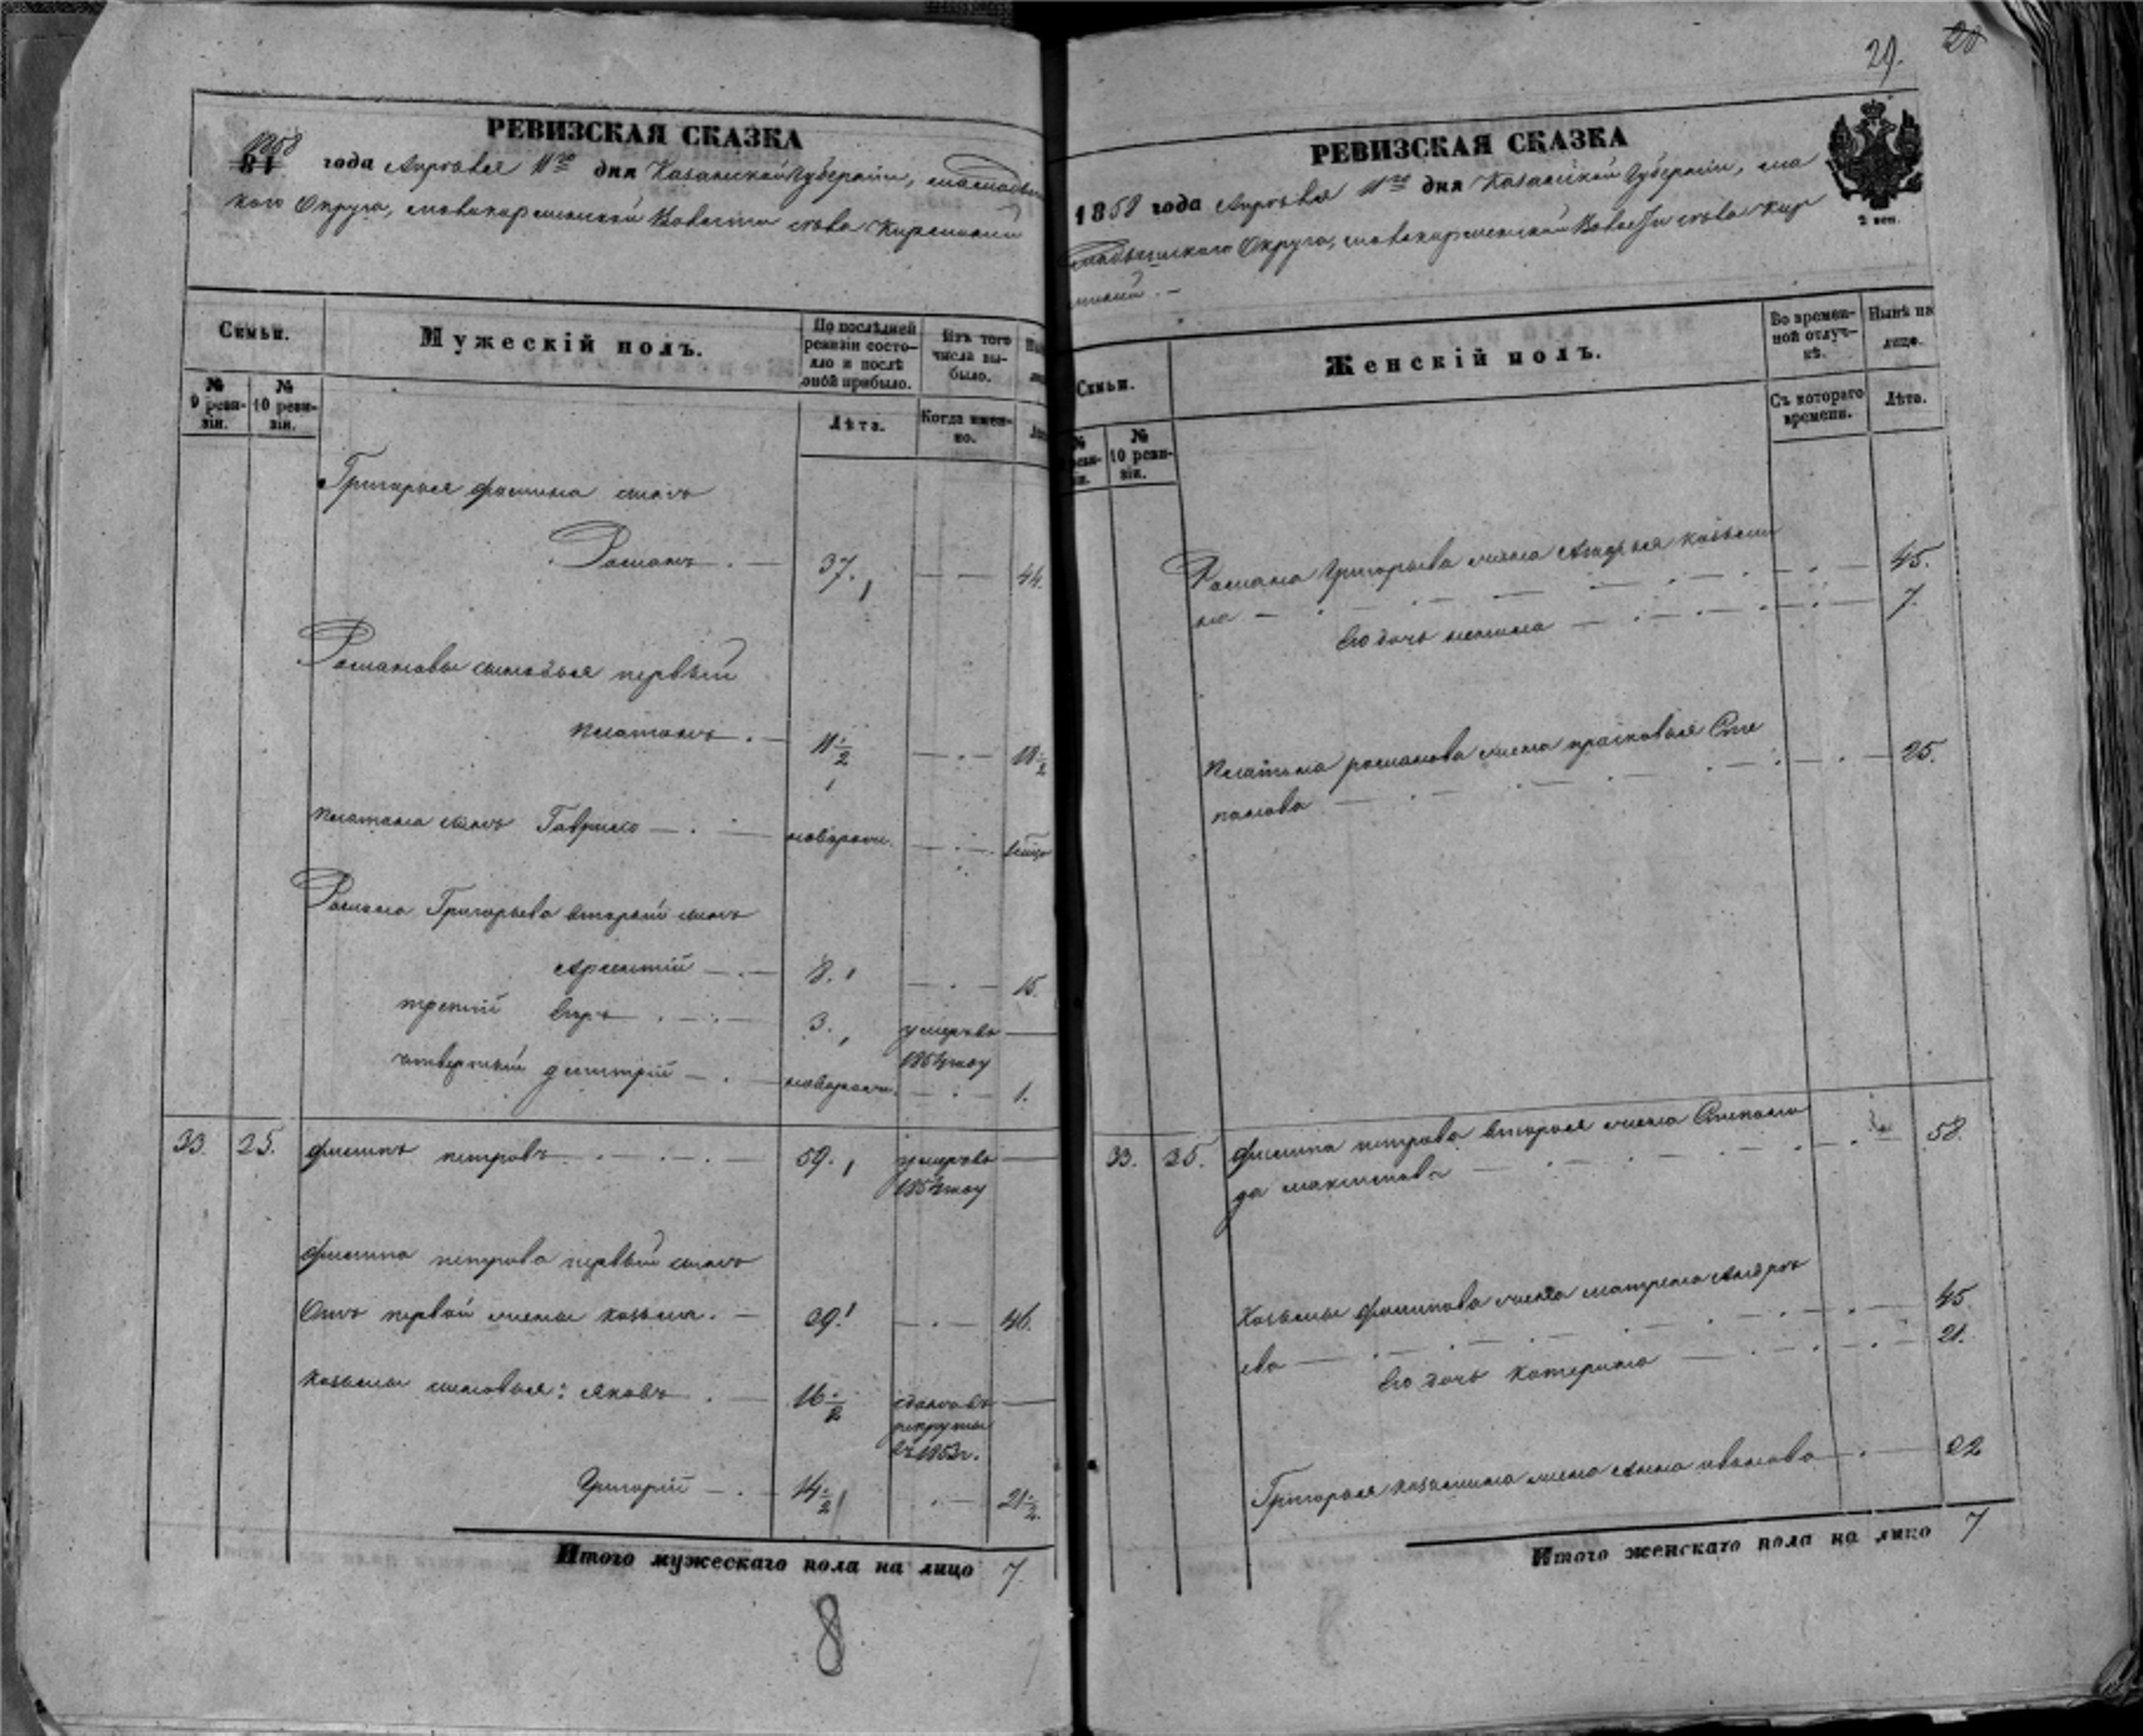 РЕВИЗСКАЯ СКАЗКА
1858 года Апрѣля 11го дня Казанской Губерніи,
кого Округа, Новокиреметской Волости
Семьи.
Мужескій полъ.
По послѣдней ревизіи состояло и послѣ оной прибыло.
Изъ того числа выбыло.
№ 9 ревизіи.
№ 10 ревизіи.
Лѣта.
Когда именно.
Григорья Фомина сынъ
Романъ 37. 44.
Романовы сыновья первый
Платонъ 11 1/2 18 1/2
Платона сынъ Гаврило новорожд.
Романа Григорьева вторый сынъ
Арсентій 8. 15.
третій Егоръ 3. умеръ въ
1854 году
четвертый Дмитрій новорожд. 1.
33. 25. Филипъ Петровъ 59. умеръ въ
1854 году
Филипа Петрова первый сынъ
Отъ первой жены Козьма 39. 46.
Козьмы сыновья: Яковъ 16 1/2 сданъ въ
рекруты
въ 1853 г.
Григорій 14 1/2 21 1/2
Итого мужескаго пола на лицо 7
8
29. 20
РЕВИЗСКАЯ СКАЗКА
1858 года Апрѣля 11го дня Казанской Губерніи,
Округа, Новокиреметской Волости
2 коп.
Семьи.
Женскій полъ.
Во временной отлучкѣ.
Нынѣ на лицо.
№ 10 ревизіи.
Съ котораго времени.
Лѣта.
Романа Григорьева жена Козьми
на 45.
Его дочь 7.
Платона Романова жена Прасковья Сте
панова 25.
33. 25. Филипа Петрова вторая жена Степани
да Максимова 58.
Козьмы Филипова жена Матрена Андре
ева 45
Его дочь Катерина 21.
Григорья Козьмина жена Анна Иванова 22
Итого женскаго пола на лицо 7